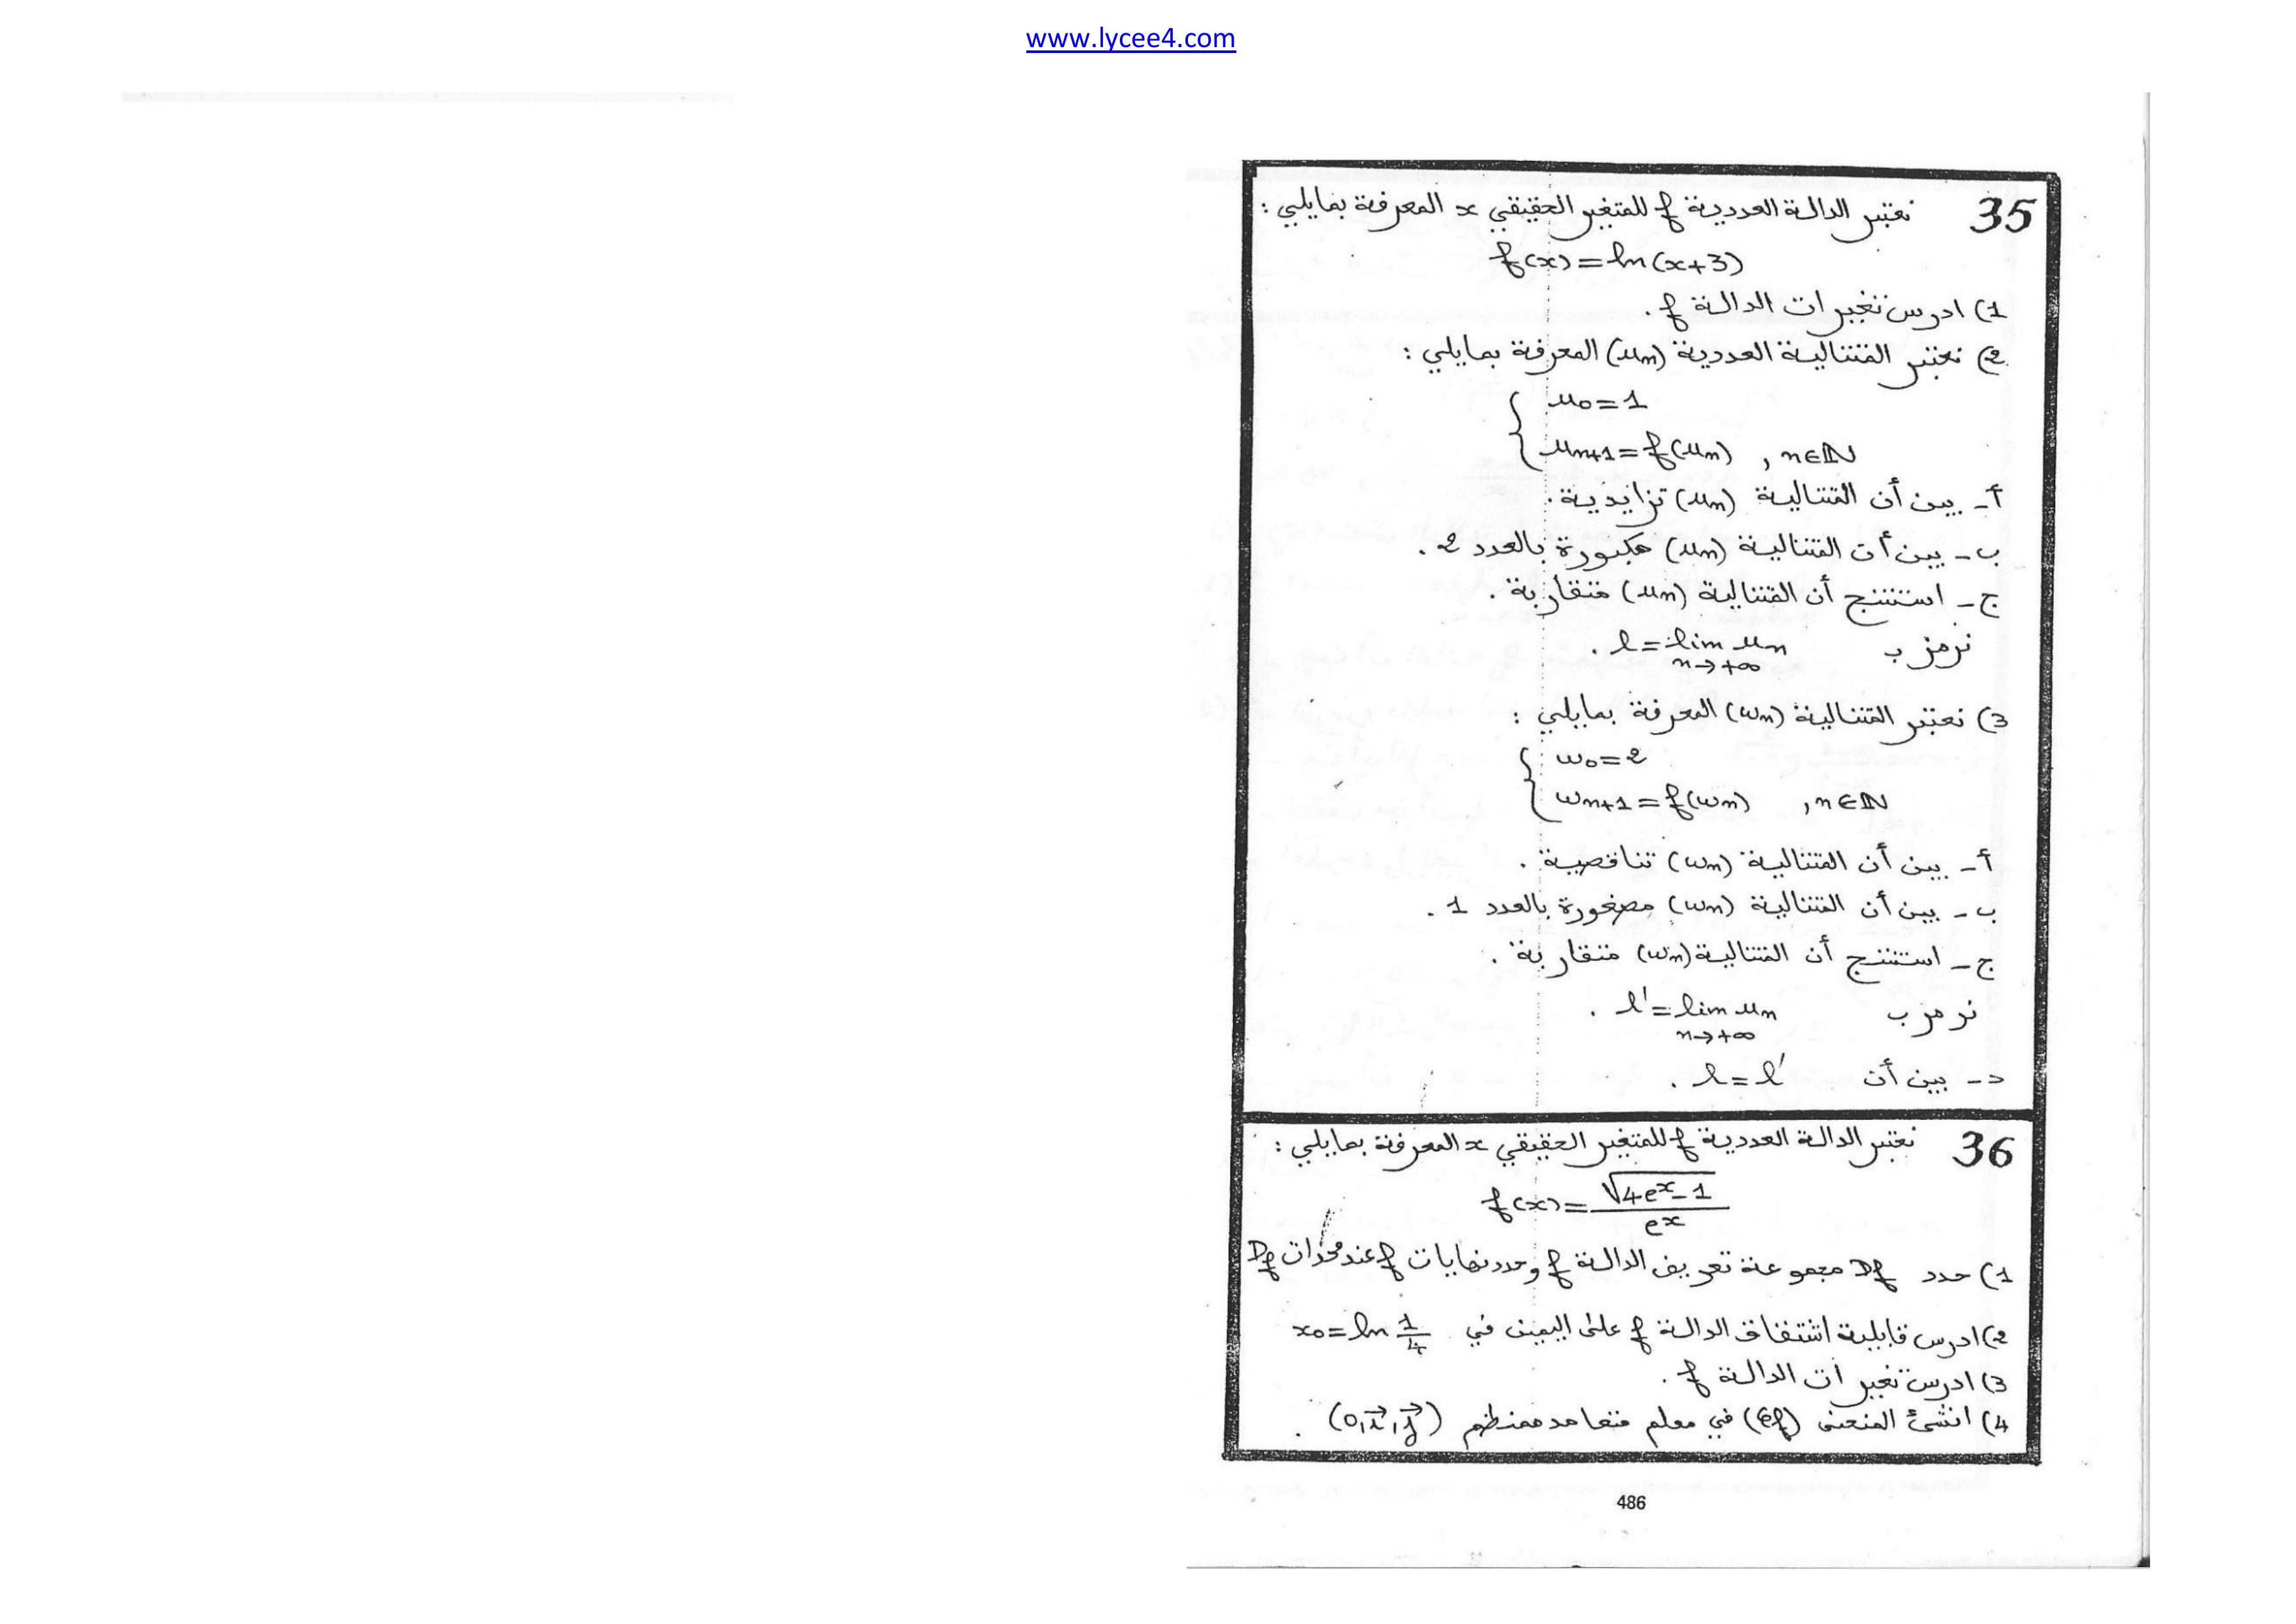 www.lycee4.com
35 نعتبر الدالة العددية f للمتغير الحقيقي x المعرفة بمايلي :
f(x)=ln(x+3)
1) ادرس تغيرات الدالة f .
2) نعتبر المتتالية العددية (un) المعرفة بمايلي :
{ u0=1
un+1=f(un) , n∈ℕ
أ- بين أن المتتالية (un) تزايدية .
ب- بين أن المتتالية (un) مكبورة بالعدد 2 .
ج- استنتج أن المتتالية (un) متقاربة .
نرمز ب l=lim un n→+∞ .
3) نعتبر المتتالية (wn) المعرفة بمايلي :
{ w0=2
wn+1=f(wn) , n∈ℕ
أ- بين أن المتتالية (wn) تناقصية .
ب- بين أن المتتالية (wn) مصغورة بالعدد 1 .
ج- استنتج أن المتتالية (wn) متقاربة .
نرمز ب l'=lim un n→+∞ .
د- بين أن l=l' .
36 نعتبر الدالة العددية f للمتغير الحقيقي x المعرفة بمايلي :
f(x)=√(4e^x-1)/e^x
1) حدد Df مجموعة تعريف الدالة f وحدد نهايات f عند محدات Df
2) ادرس قابلية اشتقاق الدالة f على اليمين في x0=ln 1/4
3) ادرس تغيرات الدالة f .
4) انشئ المنحنى (Cf) في معلم متعامد ممنظم (o,i⃗,j⃗) .
486